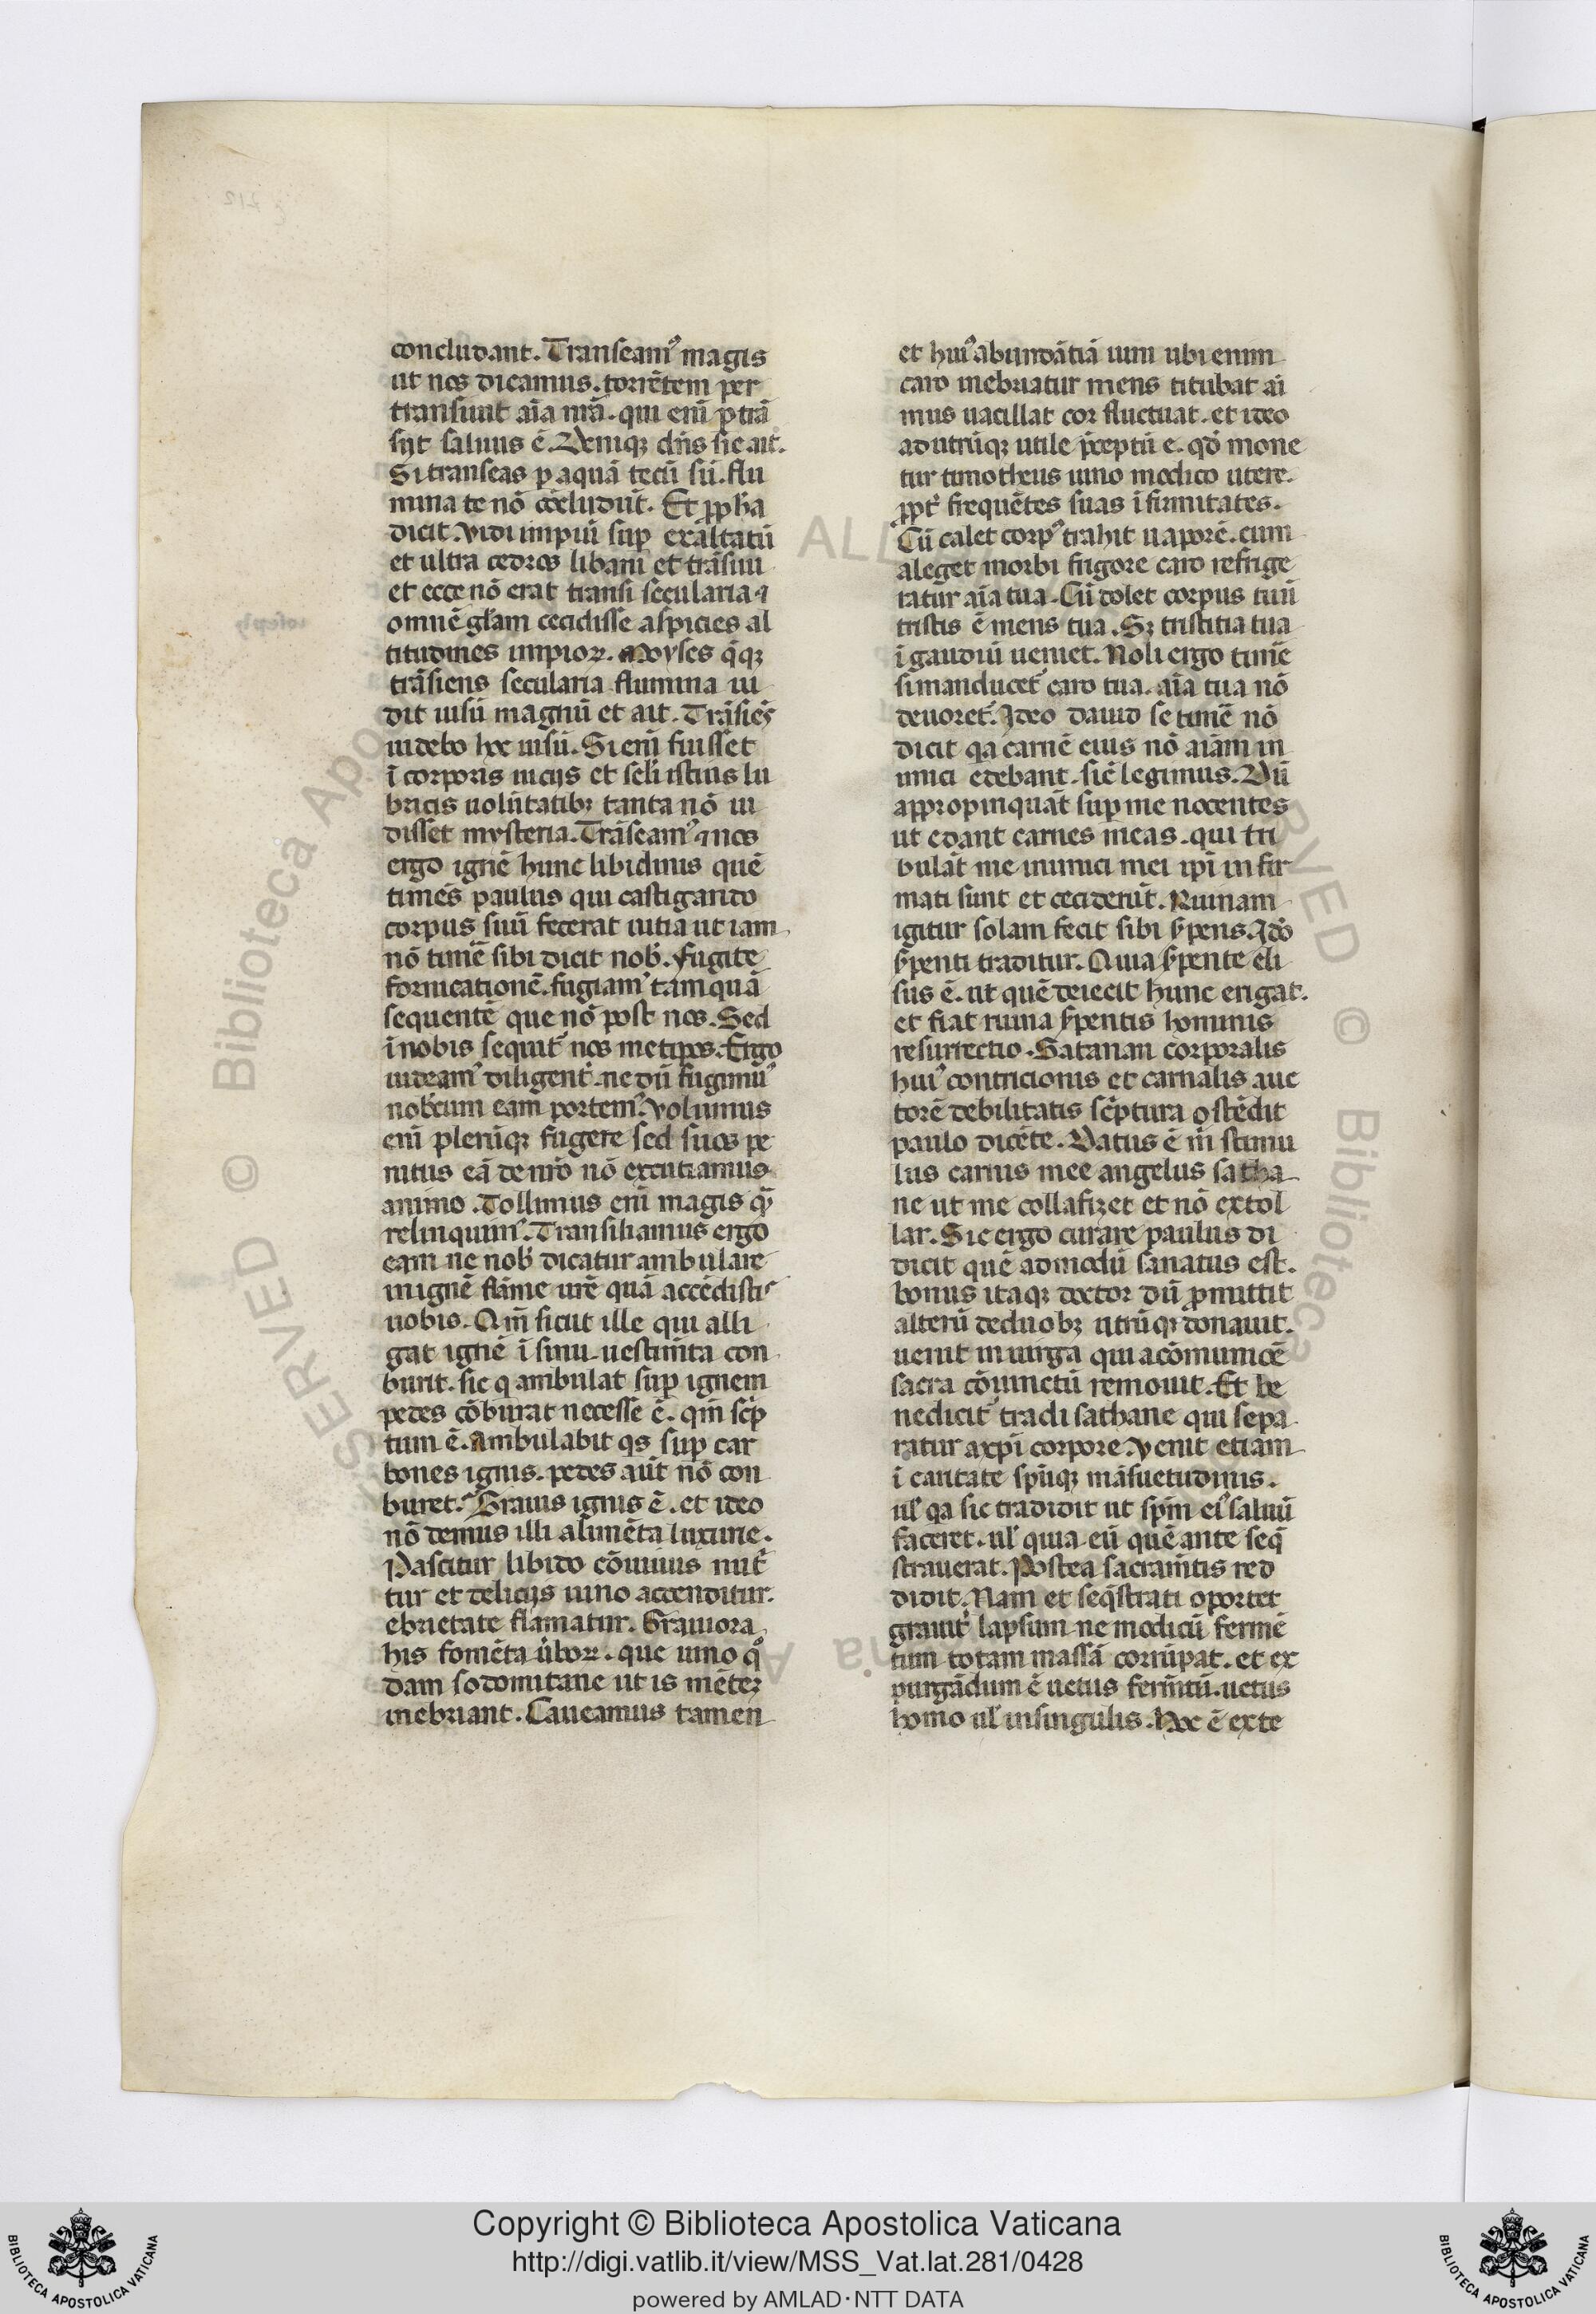 concludant. Transeamꝰ magis
ut nos dicamus. torrētem per
transiuit aīa nrā. qui enī ꝑtrā
sijt saluus ē. Deniqꝫ dn̄s sic ait.
Si transeas ꝑ aquā tecū sū. flu
mina te nō cōcludūt. Et ꝓpha
dicit. Vidi impiū suꝑ exaltatū
et ultra cedros libani et trāsiui
et ecce nō erat transi secularia ⁊
omnē glām cecidisse aspicies al
titudines impioꝝ. Moyses q̄qꝫ
trāsiens secularia flumina ui
dit uisū magnū et ait. Trāsiēs
uidebo hoc uisū. Si enī fuisset
ī corporis uicijs et seli istius lu
bricis uolūtatibꝫ tanta nō ui
disset mysteria. Trāseamꝰ ⁊ nos
ergo ignē hunc libidinis quē
timēs paulus qui castigando
corpus suū fecerat uitia ut iam
nō timē sibi dicit nob. fugite
fornicationē. fugiamꝰ tamquā
sequentē que nō post nos. Sed
ī nobis sequit᷑ nos metipos. Ergo
uideamꝰ diligent᷑. ne dū fugimꝰ
nobcum eam portemꝰ. Volumus
enī pleriqꝫ fugere sed suos pe
nitus eā de nr̄o nō excutiamus
animo. Tollimus enī magis qͣ
relinquimꝰ. Transiliamus ergo
eam ne nob dicatur ambulare
in ignē flāme urē quā accēdistis
uobis. Qm̄ sicut ille qui alli
gat ignē ī sinu uestimīta con
burit. sic q ambulat suꝑ ignem
pedes cōburat necesse ē. qm̄ scp̄
tum ē. Ambulabit qs suꝑ car
bones ignis. pedes aūt nō con
buret. Grauis ignis ē. et ideo
nō demus illi alimēta luxurie.
Pascitur libido cōuiuiis nut᷑
tur et delicijs uino accenditur.
ebrietate flāmatur. Grauiora
his fomēta ūboꝝ. que uino qͦ
dam sodomitane uitis mētes
inebriant. Caueamus tamen
et huiꝰ abundātiā uini ubi enim
caro inebriatur mens titubat ai
mus uacillat cor fluctuat. et ideo
ad utrūqꝫ utile p̄ceptū e. qd̄ mone
tur timotheus uino modico utere.
ꝓpt᷑ frequētes suas ifirmitates.
Cū calet corpꝰ trahit uaporē. cum
aleget morbi frigore caro refrige
ratur aīa tua. Cū dolet corpus tuū
tristis ē mens tua. Sꝫ tristitia tua
ī gaudiū ueniet. Noli ergo timē
si manducet᷑ caro tua. aīa tua nō
deuoret᷑. Ideo dauid se timē nō
dicit qa carnē eius nō aīam in
imici edebant. sic̄ legimus. Dū
appropinquāt suꝑ me nocentes
ut edant carnes meas. qui tri
bulāt me inimici mei ipī infir
mati sunt et ceciderūt. Ruinam
igitur solam fecit sibi ẜpens. Idō
ẜpenti traditur. Quia ẜpente eli
sus ē. ut quē deiecit hunc erigat.
et fiat ruina ẜpentis hominis
resurrectio. Satanan corporalis
huiꝰ contricionis et carnalis auc
torē debilitatis sc̄ptura ostēdit
paulo dicēte. Datus ē m̄ stimu
lus carnis mee angelus satha
ne ut me collafizet et nō extol
lar. Sic ergo curare paulus di
dicit quē admodū sanatus est.
bonus itaqꝫ doctor dū ꝓmittit
alterū de duobꝫ utrūqꝫ donauit.
uenit in uirga qui a cōmunicē
sacra cōiunctū remouit. Et be
nedicit᷑ tradi sathane qui sepa
ratur a xpī corpore. Venit etiam
ī caritate spūqꝫ māsuetudinis.
ul̄ qa sic tradidit ut spm̄ eiꝰ saluū
faceret. ul̄ quia eū quē ante seq̄
strauerat. Postea sacram̄tis red
didit. Nam et seq̄strati oportet
grauit᷑ lapsum ne modicū fermē
tum totam massā corrūpat. et ex
purgādum ē uetus ferm̄tū. uetus
homo ul̄ in singulis. Hoc ē exte
Copyright © Biblioteca Apostolica Vaticana
http://digi.vatlib.it/view/MSS_Vat.lat.281/0428
powered by AMLAD·NTT DATA
BIBLIOTECA APOSTOLICA VATICANA
BIBLIOTECA APOSTOLICA VATICANA